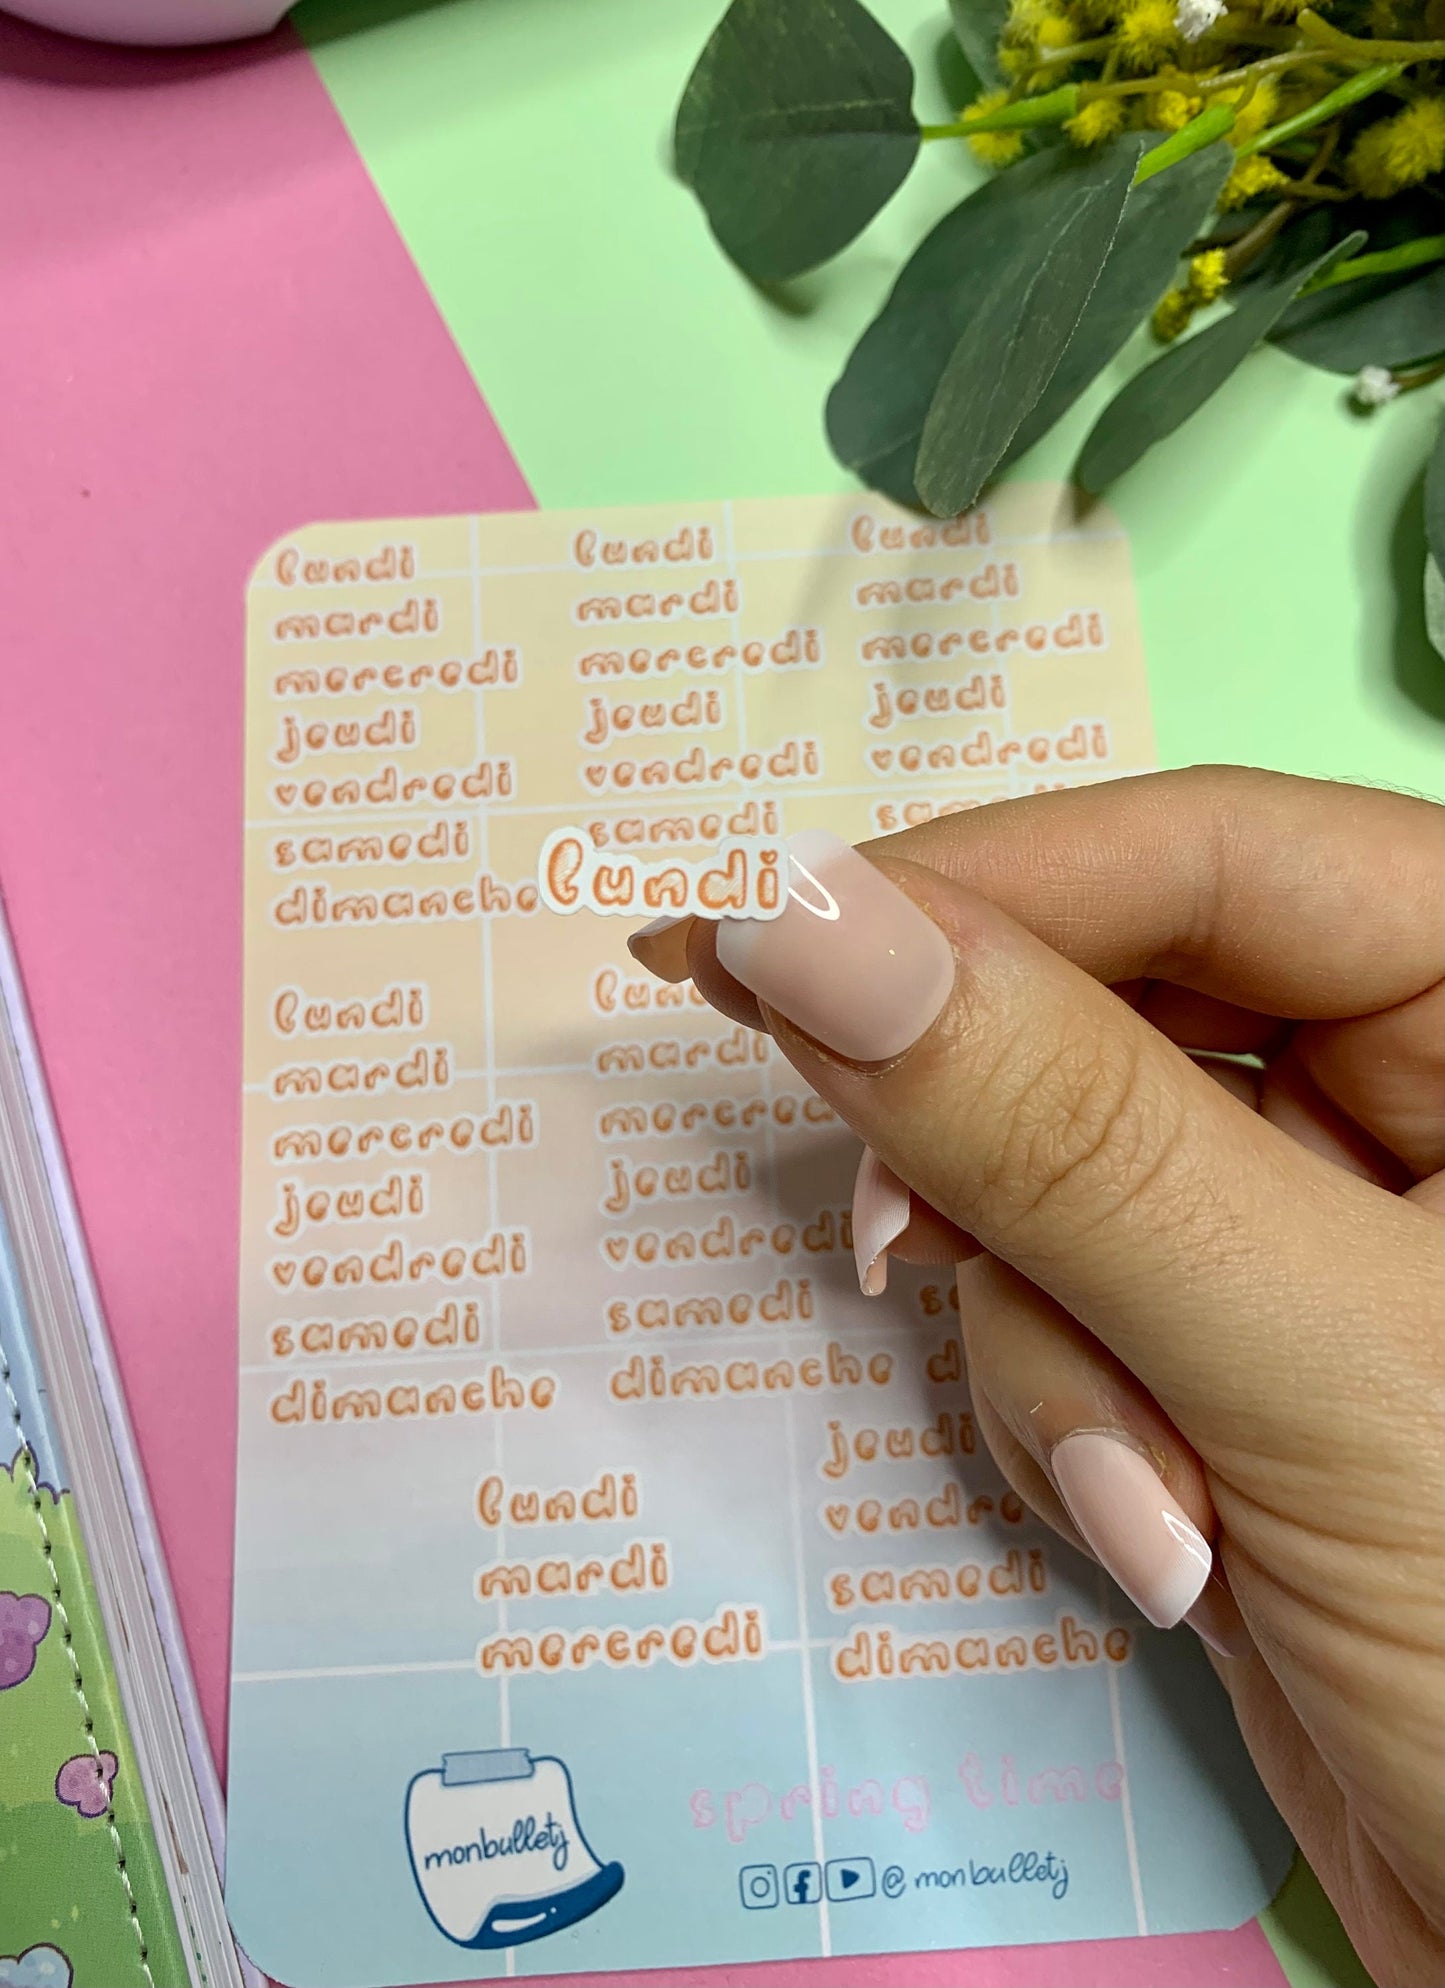 lundi lundi lundi
mardi mardi mardi
mercredi mercredi mercredi
jeudi jeudi jeudi
vendredi vendredi vendredi
samedi samedi
dimanche
lundi
lundi
mardi mardi
mercredi
jeudi jeudi
vendredi vendredi
samedi samedi
dimanche dimanche
jeudi
lundi
mardi samedi
mercredi dimanche
monbulletj
spring time
@monbulletj